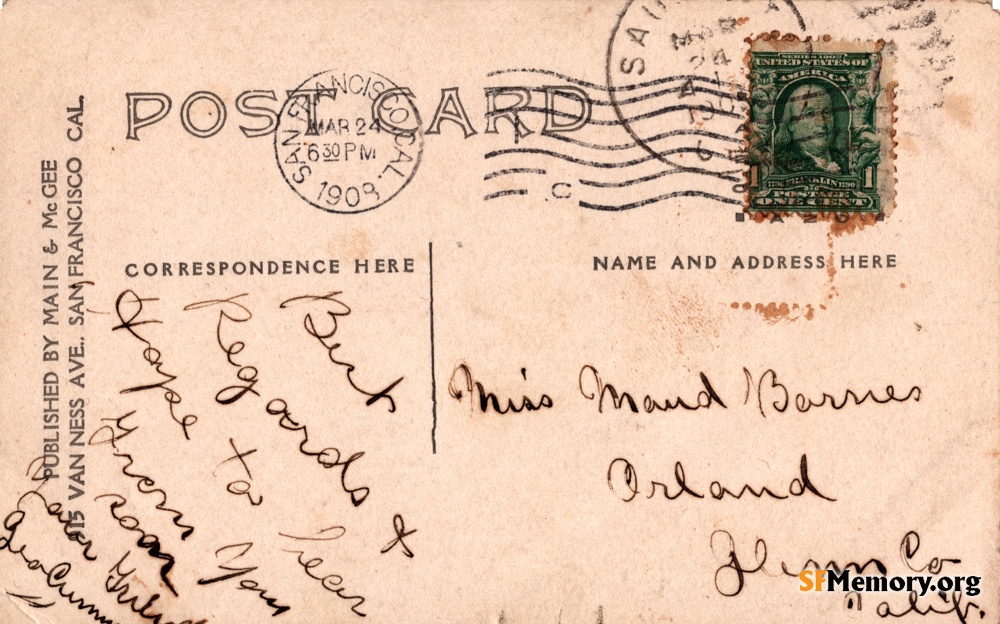 POST CARD
SAN FRANCISCO, CAL.
MAR 24
6 30 PM
1908
C
SERIES 1902
UNITED STATES OF
AMERICA
1 1
1706 FRANKLIN 1790
POSTAGE
ONE CENT
PUBLISHED BY MAIN & McGEE
915 VAN NESS AVE., SAN FRANCISCO CAL.
CORRESPONDENCE HERE
NAME AND ADDRESS HERE
Best
Regards &
Hope to hear
from you
soon
Geo
Miss Maud Barnes
Orland
Glenn Co
Calif.
SFMemory.org